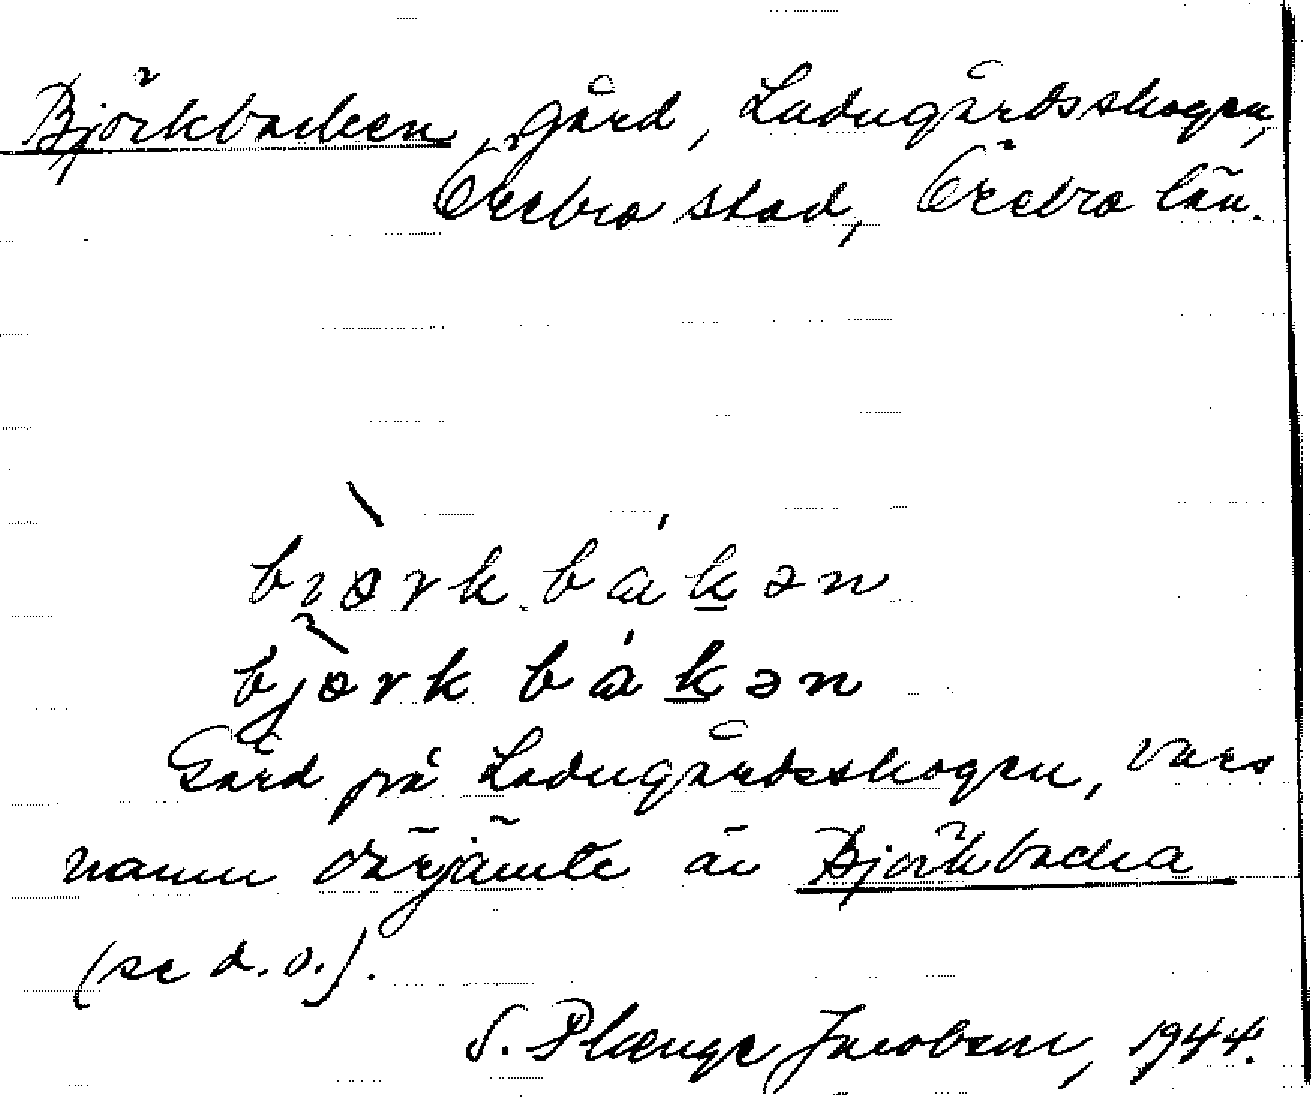 Björkbacken, gård, Ladugårdsskogen,
Örebro stad, Örebro län.
bıɵrk bákən
bjɵrk bákən
Gård på Ladugårdsskogen, vars
namn därjämte är Björkbacka
(se d.o.).
S. Plænge Jacobson, 1944.